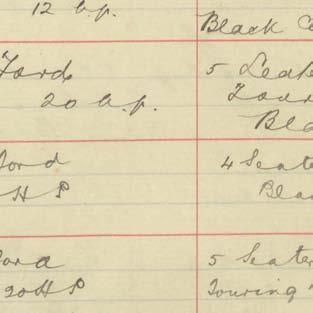 12 h.p.
Black
Ford
20 h.p.
5 Seater
Black
Ford
HP
4 Seater
Black
Ford
20HP
5 Seater
Touring